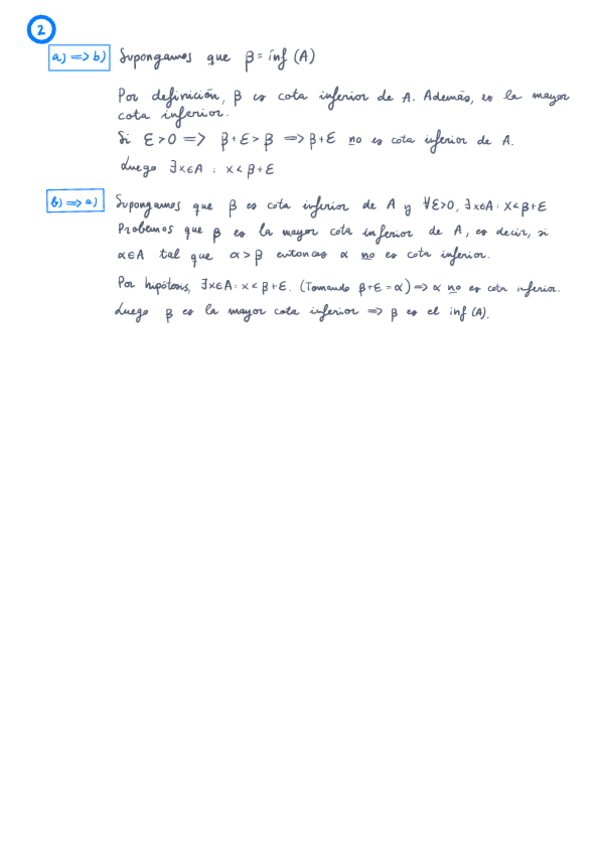 2
a) => b) Supongamos que β = ínf (A)
Por definición, β es cota inferior de A. Además, es la mayor
cota inferior.
Si Ɛ > 0 => β+Ɛ > β => β+Ɛ no es cota inferior de A.
Luego ∃x∈A : x < β+Ɛ
b) => a) Supongamos que β es cota inferior de A y ∀Ɛ>0, ∃x∈A : x < β+Ɛ
Probemos que β es la mayor cota inferior de A, es decir, si
α∈A tal que α > β entonces α no es cota inferior.
Por hipótesis, ∃x∈A : x < β+Ɛ. (Tomando β+Ɛ = α) => α no es cota inferior.
Luego β es la mayor cota inferior => β es el inf (A).